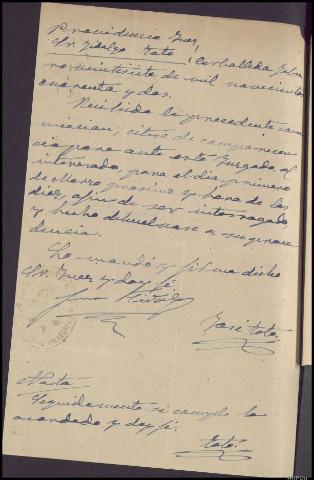 Providencia Juez
Sr. Hidalgo Tato. Carballeda
ro veintisiete de mil novecientos
cuarenta y dos.
Recibida la precedente comu
nicacion, citese de comparecen
cia para ante este Juzgado, al
interesado, para el dia primero
de Marzo proximo y hora de las
diez, a fin de ser interrogado
y hecho devuelvase a su proce
dencia.
Lo mandó y firma dicho
Sr. Juez y doy fé.
José Tato
Nota
Seguidamente se cumple lo
mandado y doy fé.
Tato